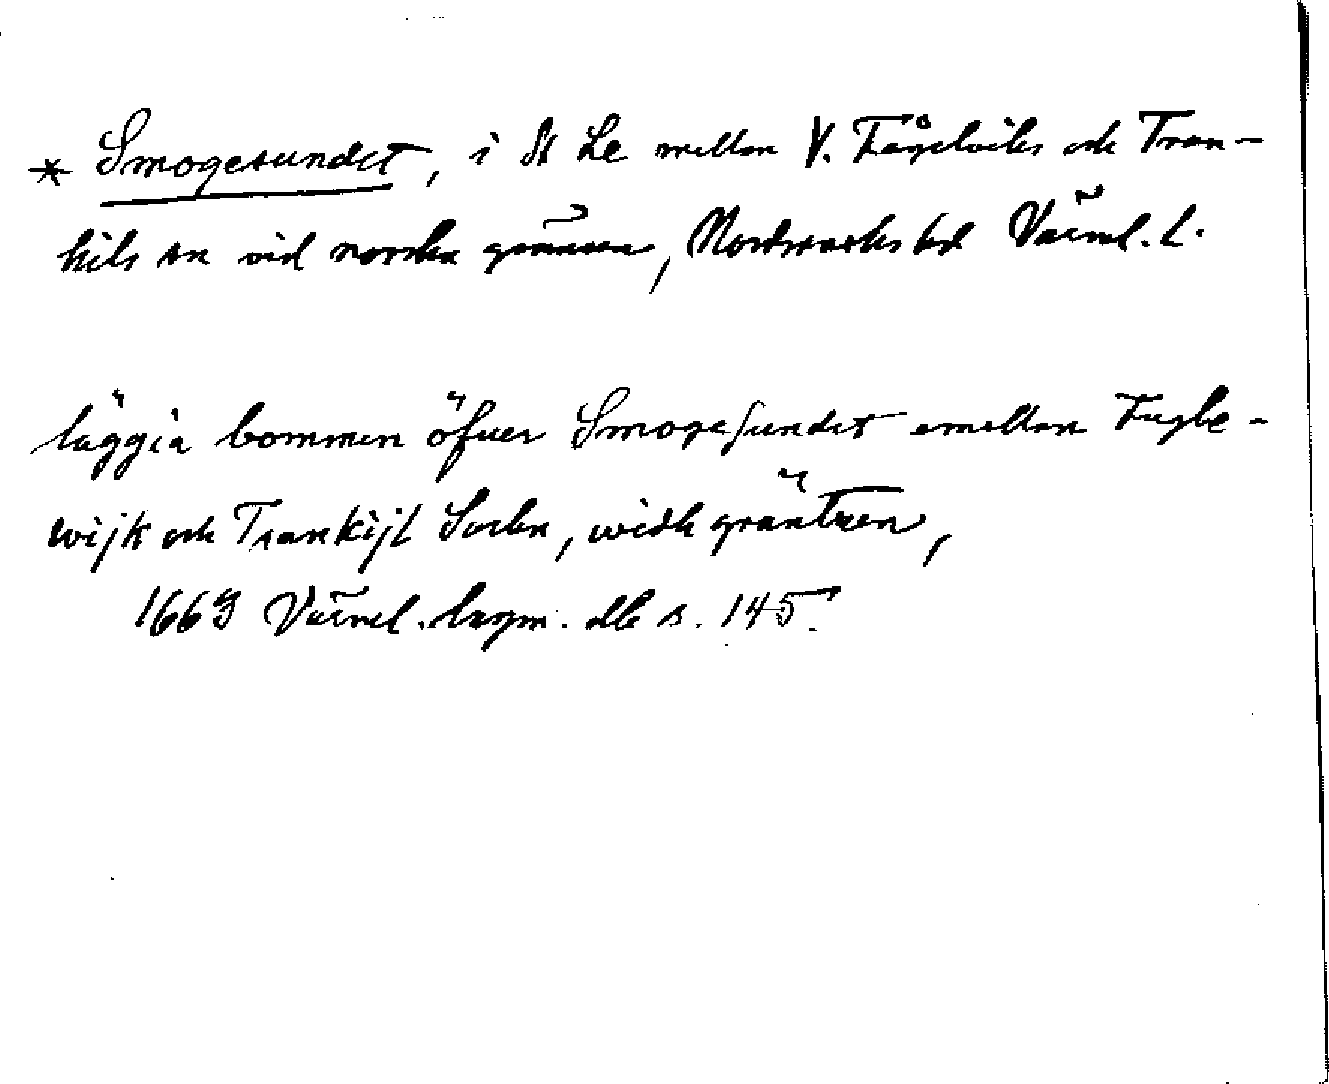 * Smogesundet, i St Le mellan V. Fågelviks och Tran-
kils sn vid norska gränsen, Nordmarks hd Värml. l.
läggia bommen öfuer Smogesundet emellan Fugle-
wijk och Trankijl Sockn, widh gräntzen,
1663 Värml. lagm. db s. 145.